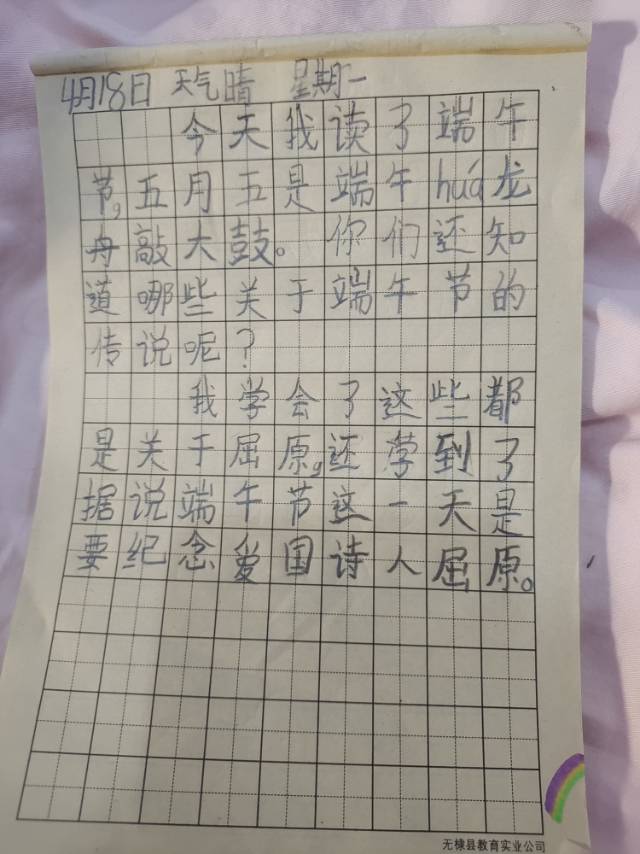 4月18日 天气晴 星期一
今天我读了端午
节,五月五是端午huá龙
舟敲大鼓。你们还知
道哪些关于端午节的
传说呢?
我学会了这些都
是关于屈原,还学到了
据说端午节这一天是
要纪念爱国诗人屈原。
无棣县教育实业公司